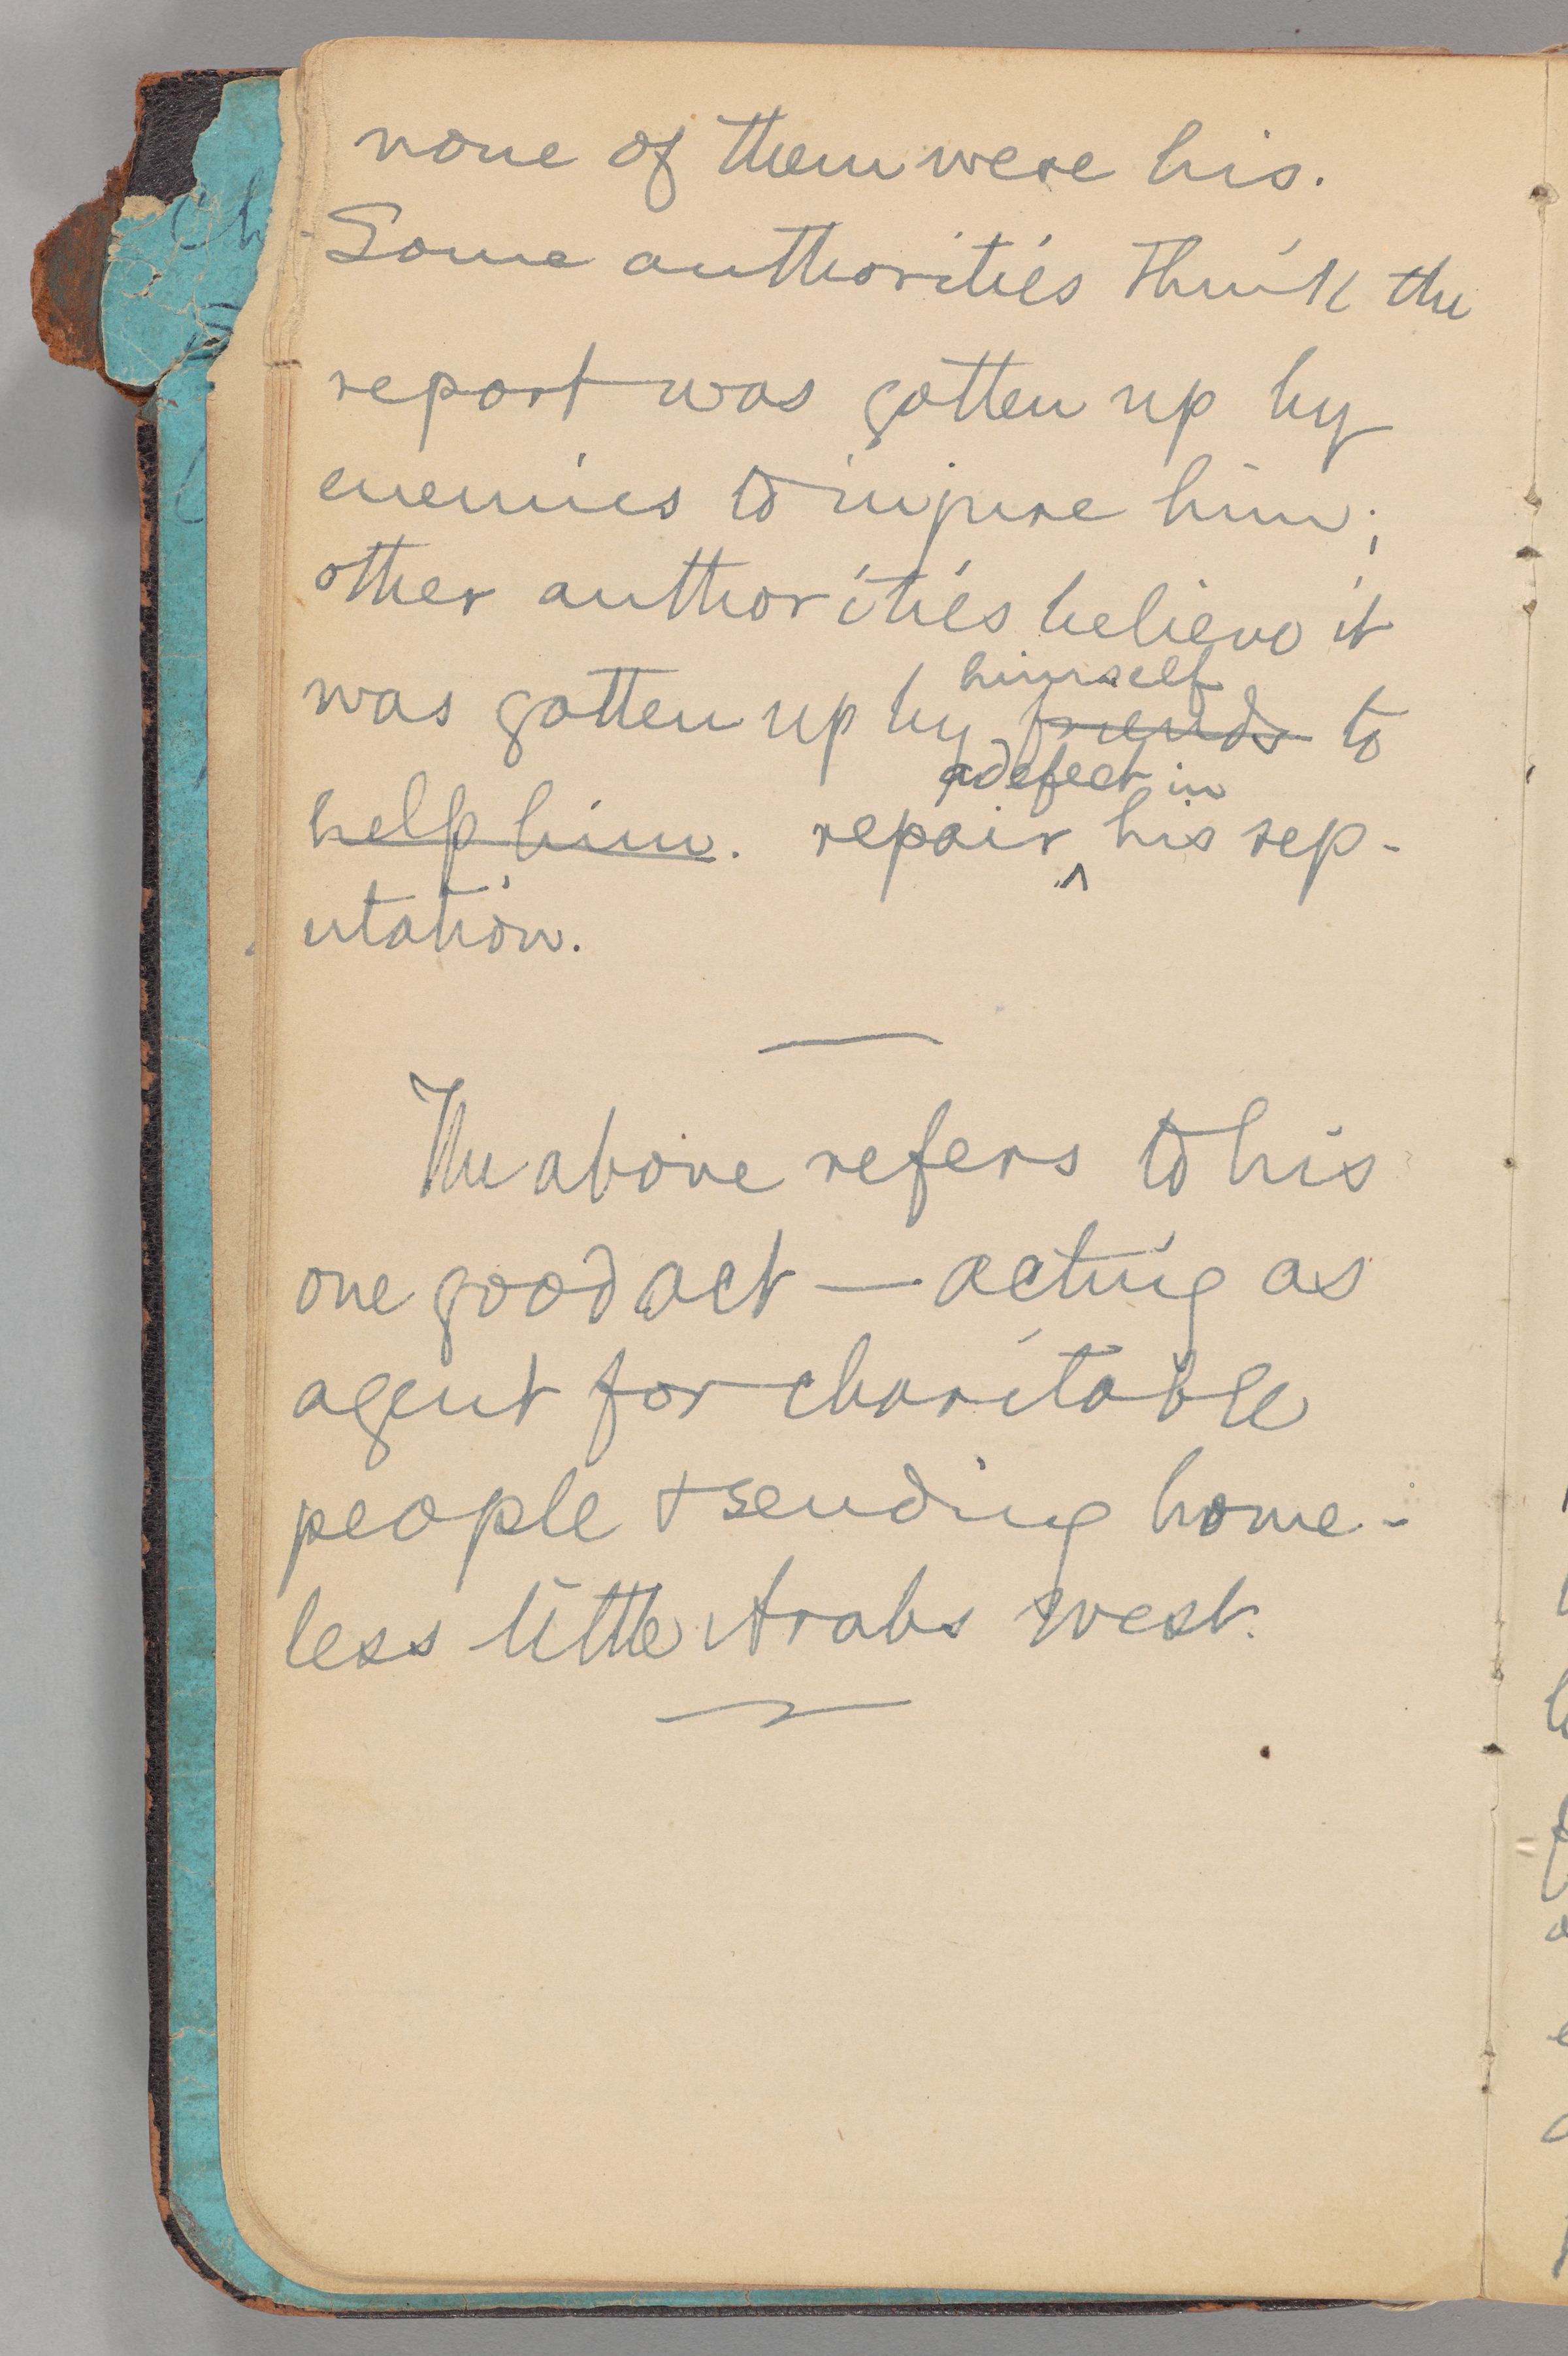 none of them were his.
Some authorities think the
report was gotten up by
enemies to injure him;
other authorities believe it
himself
was gotten up by friends to
a defect in
help him. repair ^ his rep-
utation.
The above refers to his
one good act — acting as
agent for charitable
people & sending home-
less little Arabs west.